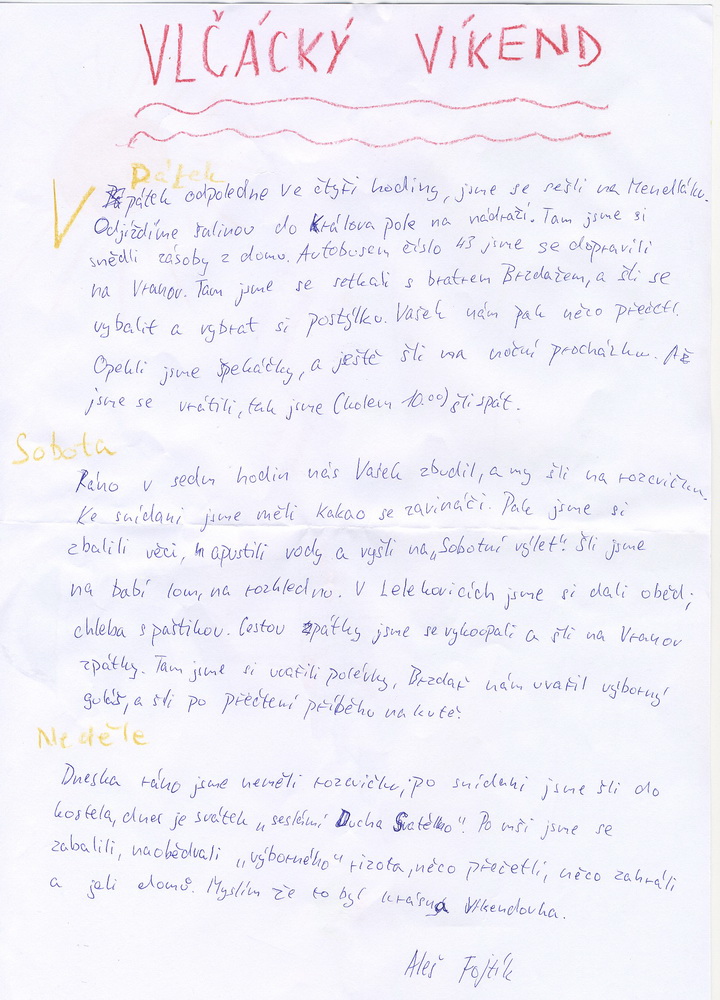 VLČÁCKÝ VÍKEND
Pátek
V pátek odpoledne ve čtyři hodiny, jsme se sešli na Mendláku.
Odjíždíme šalinou do Králova pole na nádraží. Tam jsme si
snědli zásoby z domu. Autobusem číslo 43 jsme se dopravili
na Vranov. Tam jsme se setkali s bratrem Brzdařem, a šli se
vybalit a vybrat si postýlku. Vašek nám pak něco přečetl.
Opekli jsme špekáčky, a ještě šli na noční procházku. Až
jsme se vrátili, tak jsme (kolem 10.00) šli spát.
Sobota
Ráno v sedm hodin nás Vašek zbudil, a my šli na rozcvičku.
Ke snídani jsme měli kakao se zavináči. Pak jsme si
zbalili věci, napustili vody a vyšli na „Sobotní výlet“. Šli jsme
na babí lom, na rozhlednu. V Lelekovicích jsme si dali oběd;
chleba s paštikou. Cestou zpátky jsme se vykoupali a šli na Vranov
zpátky. Tam jsme si uvařili polévky, Brzdař nám uvařil výborný
guláš, a šli po přečtení příběhu na kutě.
Neděle
Dneska ráno jsme neměli rozcvičku, po snídani jsme šli do
kostela, dnes je svátek „seslání Ducha Svatého“. Po mši jsme se
zabalili, naobědvali „výborného“ rizota, něco přečetli, něco zahráli
a jeli domů. Myslím že to byl krásná Víkendovka.
Aleš Fojtík